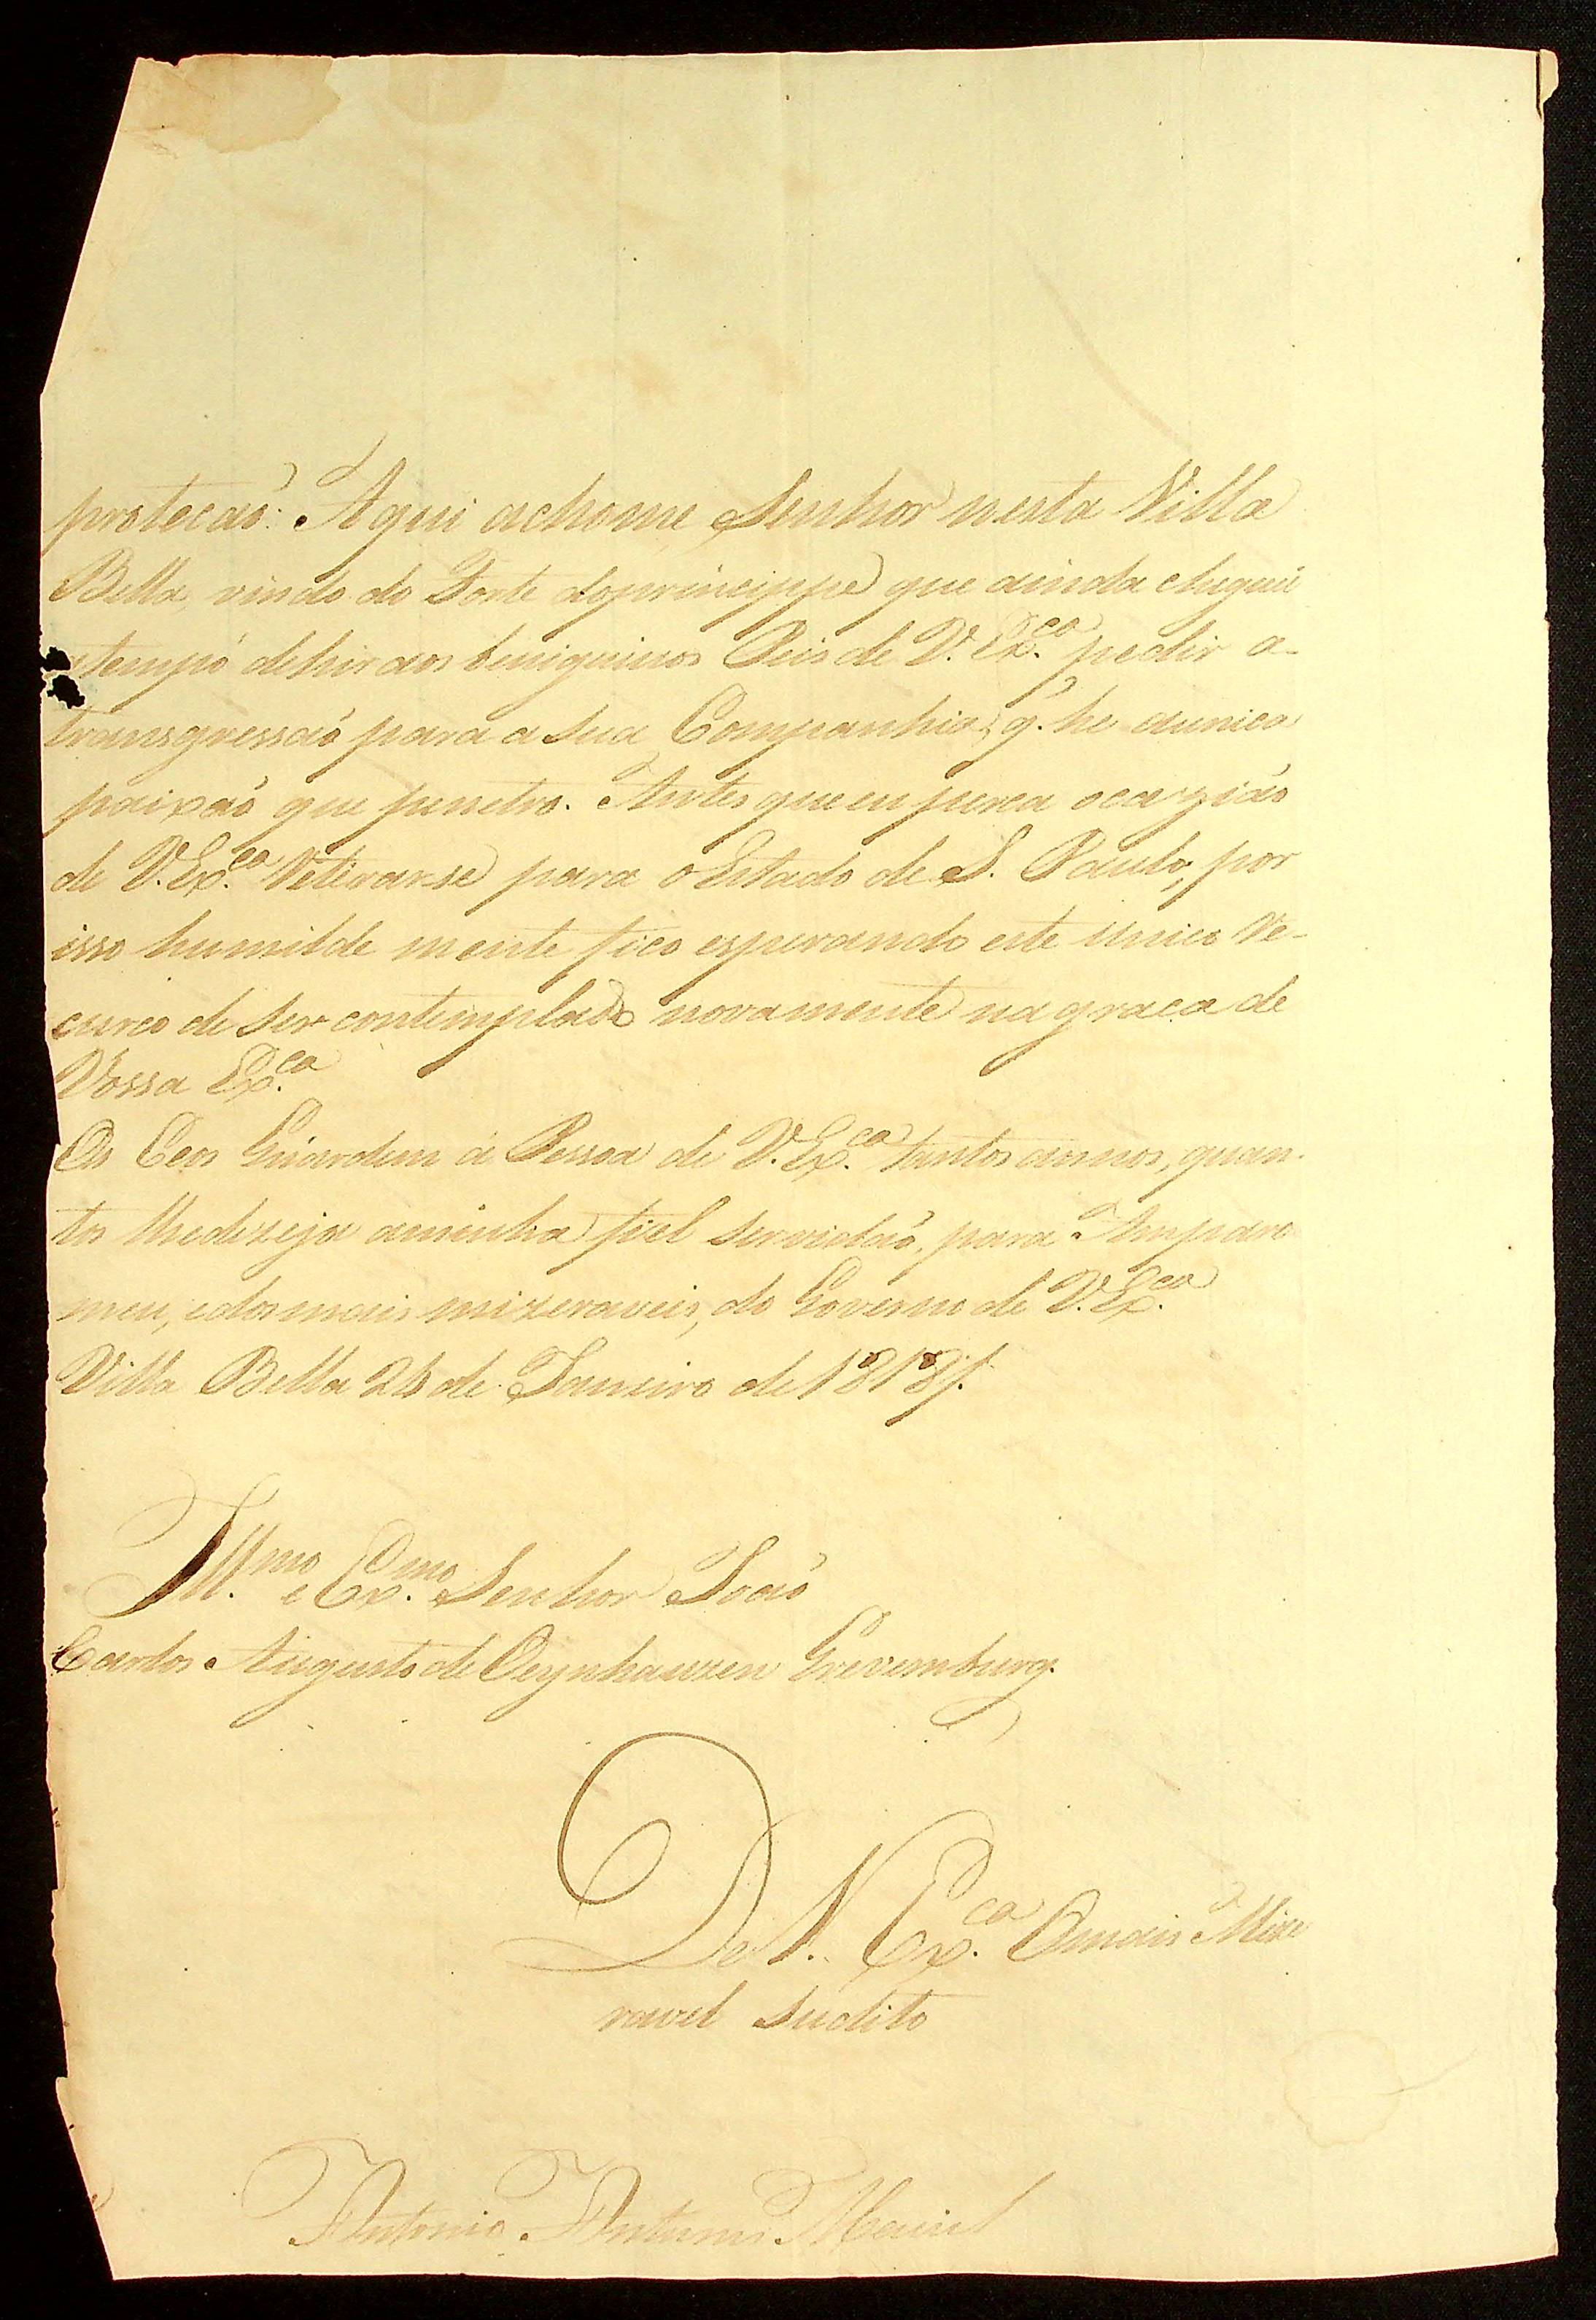 protecaõ: Aqui achome Senhor nesta Villa
Bella vindo do Forte doprincippe que ainda cheguei
atempo dehir aos benignimos Peis de V. Ex.ca pedir a-
transgressaõ para a sua Companhia; q.' he aunica
paixaõ que penetro. Antes que eu perca ocaziaõ
de V. Ex.ca Retirarse para o Estado de S. Paulo, por
isso humilde mente fico esperando este unico Re-
curco de ser contemplado novamente na graca de
Vossa Ex.ca
Os Ceos Guardem á Pessoa de V. Ex.ca tantos annos, quan-
tos lhedezeja aminha fiel servidaõ, para Amparo
meu, edosmais mizeraveis, do Governo de V. Ex.ca
Villa Bella 26 de Janeiro de 1818
Ill.mo e Ex.mo Senhor Joaõ
Carlos Augusto de Oeynhauzen Grevemburg.
De V. Ex.ca Omais Mize
ravel Sudito
Antonio Antunes Maciel